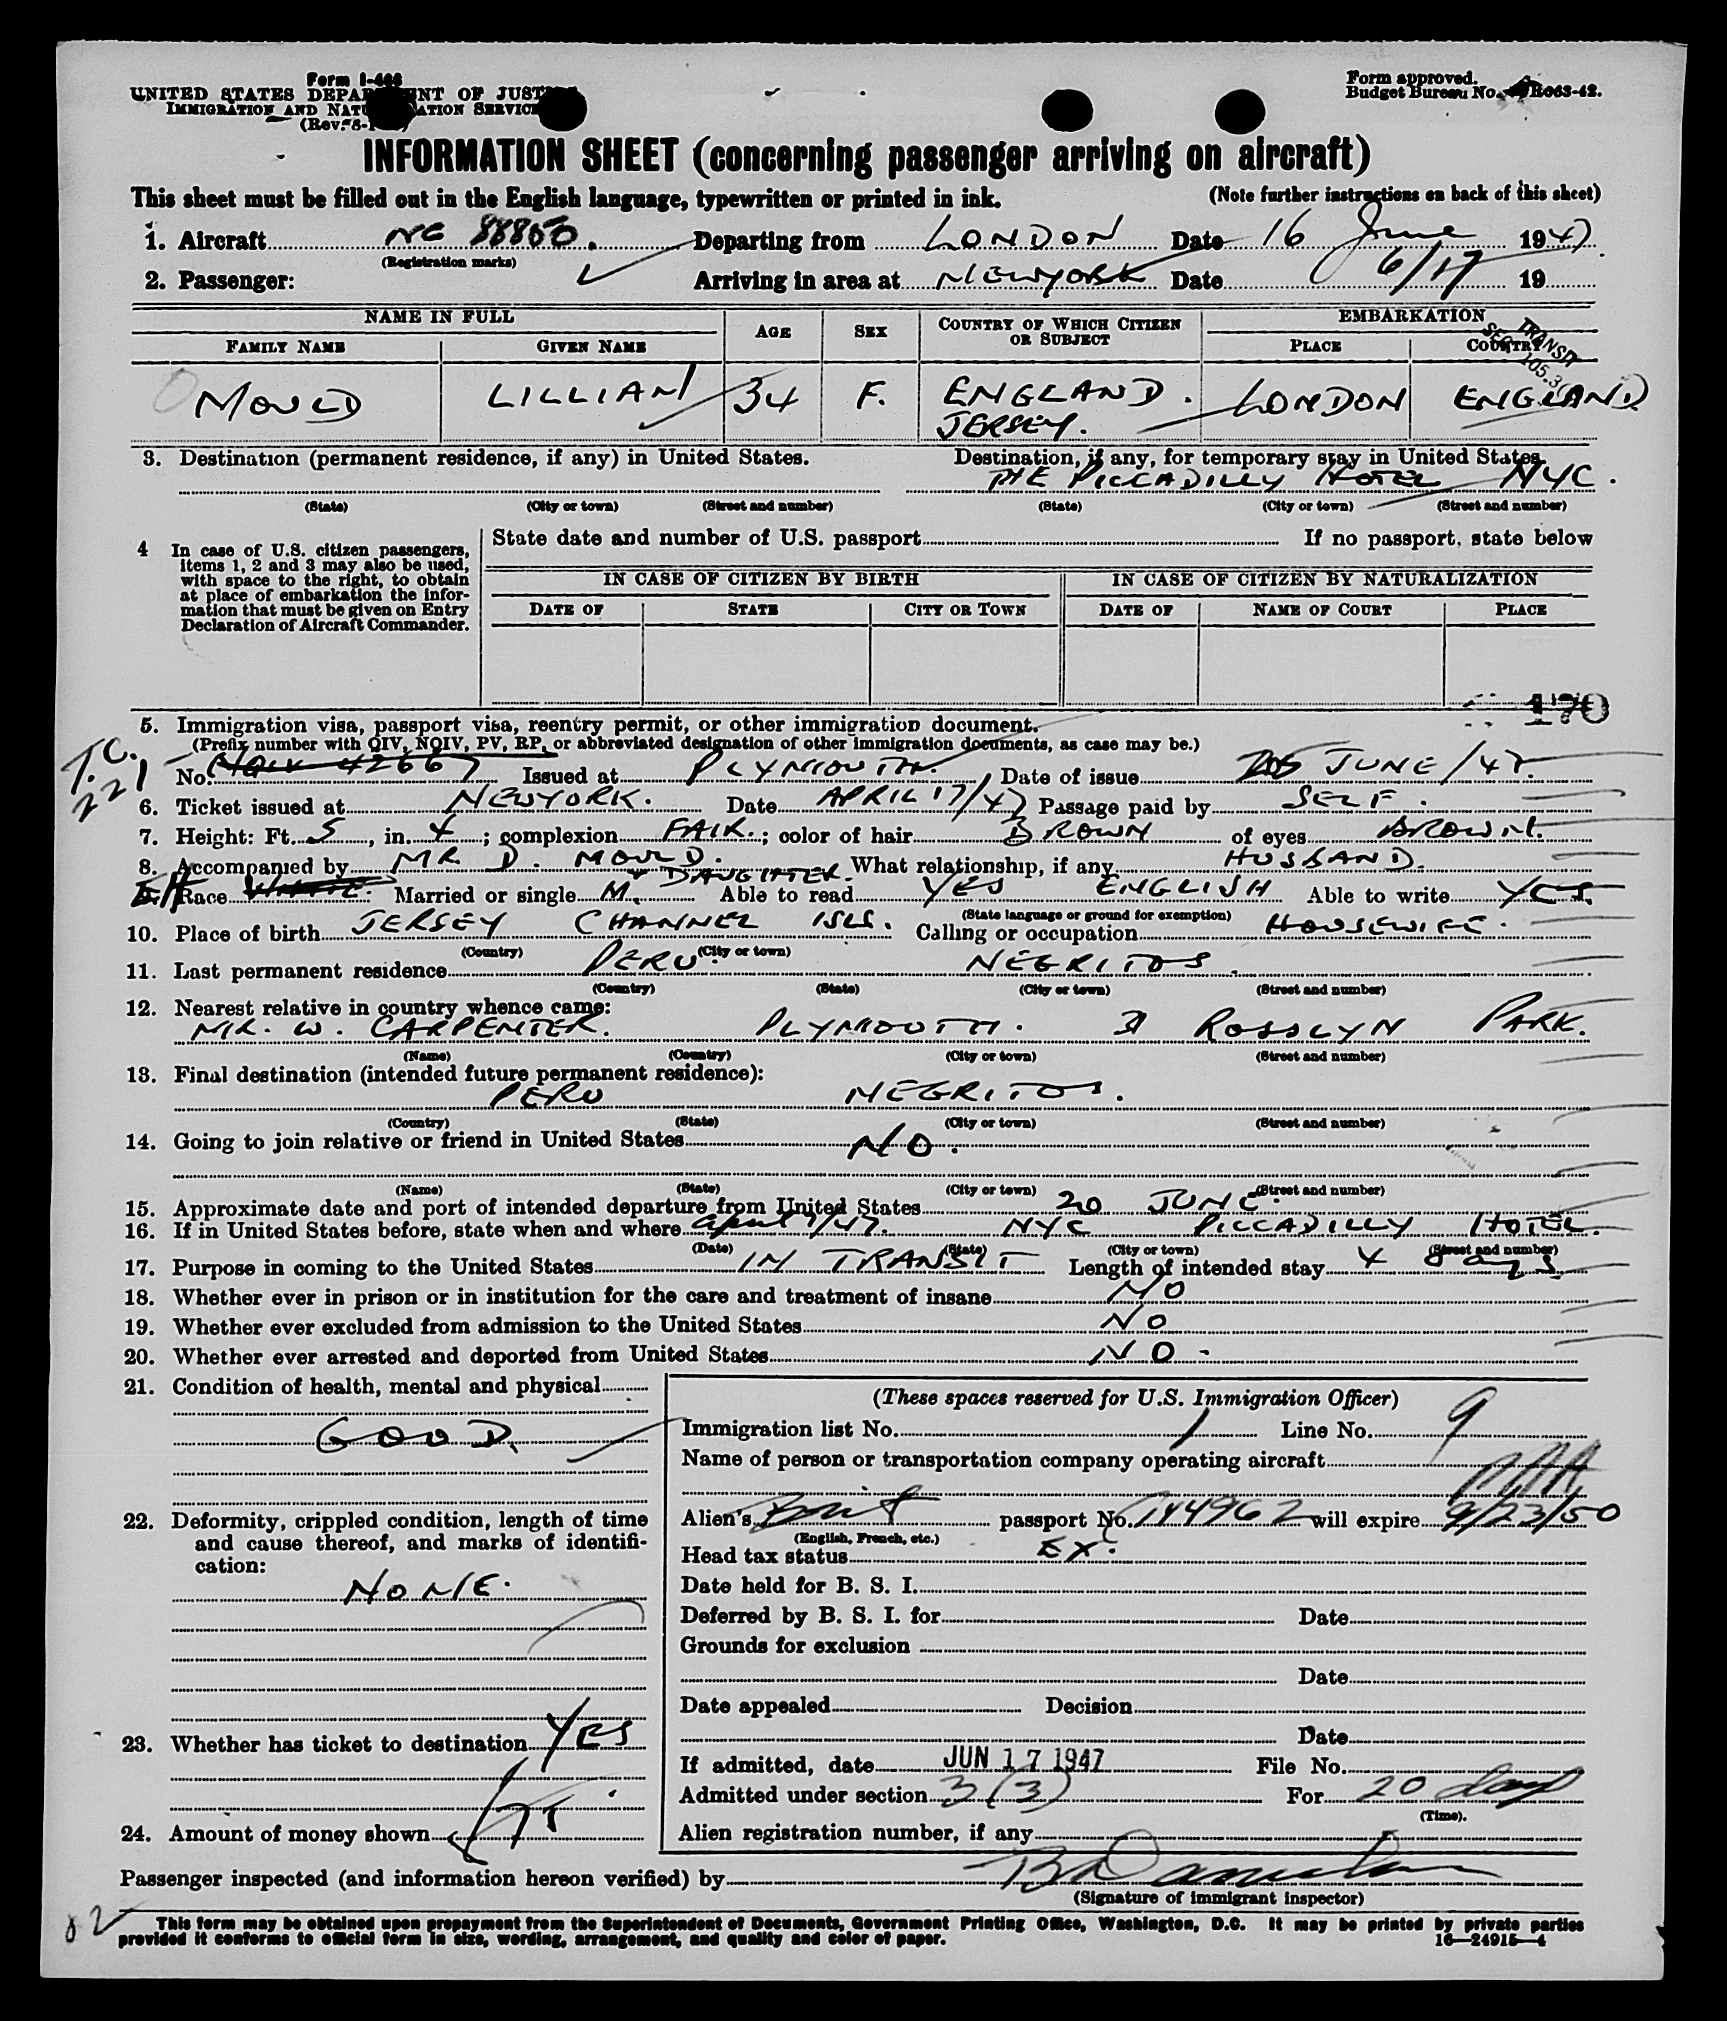 Form I-466
UNITED STATES DEPARTMENT OF JUSTICE
IMMIGRATION AND NATURALIZATION SERVICE
(Rev.
Form approved.
Budget Bureau No. R063-42.
INFORMATION SHEET (concerning passenger arriving on aircraft)
This sheet must be filled out in the English language, typewritten or printed in ink. (Note further instructions on back of this sheet)
1. Aircraft NC 88850. Departing from LONDON Date 16 June 1947
(Registration marks)
2. Passenger: Arriving in area at NEWYORK Date 6/17 19
NAME IN FULL AGE SEX COUNTRY OF WHICH CITIZEN OR SUBJECT EMBARKATION
FAMILY NAME GIVEN NAME PLACE COUNTRY
TRANSIT
SEC. 105.3
MOULD LILLIAN 34 F. ENGLAND. LONDON ENGLAND
JERSEY.
3. Destination (permanent residence, if any) in United States. Destination, if any, for temporary stay in United States.
THE PICCADILLY HOTEL NYC.
(State) (City or town) (Street and number) (State) (City or town) (Street and number)
4 In case of U.S. citizen passengers, items 1, 2 and 3 may also be used, with space to the right, to obtain at place of embarkation the information that must be given on Entry Declaration of Aircraft Commander.
State date and number of U.S. passport If no passport, state below
IN CASE OF CITIZEN BY BIRTH IN CASE OF CITIZEN BY NATURALIZATION
DATE OF STATE CITY OR TOWN DATE OF NAME OF COURT PLACE
170
5. Immigration visa, passport visa, reentry permit, or other immigration document.
(Prefix number with QIV, NQIV, PV, RP, or abbreviated designation of other immigration documents, as case may be.)
T.C. 221
No. 42667 Issued at PLYMOUTH. Date of issue JUNE/47.
6. Ticket issued at NEWYORK. Date APRIL 17/47 Passage paid by SELF.
7. Height: Ft. 5, in. 4; complexion FAIR.; color of hair BROWN of eyes BROWN.
8. Accompanied by MR. D. MOULD. What relationship, if any HUSBAND.
+ DAUGHTER.
Race WHITE. Married or single M. Able to read YES ENGLISH Able to write YES.
(State language or ground for exemption)
10. Place of birth JERSEY CHANNEL ISLS. Calling or occupation HOUSEWIFE.
(Country) (City or town)
11. Last permanent residence PERU. NEGRITOS.
(Country) (State) (City or town) (Street and number)
12. Nearest relative in country whence came:
MR. W. CARPENTER. PLYMOUTH. ROSSLYN PARK.
(Name) (Country) (City or town) (Street and number)
13. Final destination (intended future permanent residence):
PERU NEGRITOS.
(Country) (State) (City or town) (Street and number)
14. Going to join relative or friend in United States NO.
(Name) (State) (City or town) (Street and number)
15. Approximate date and port of intended departure from United States 20 JUNE.
16. If in United States before, state when and where April 7/47. NYC PICCADILLY HOTEL.
(Date) (State) (City or town) (Street and number)
17. Purpose in coming to the United States IN TRANSIT Length of intended stay 4 days
18. Whether ever in prison or in institution for the care and treatment of insane NO
19. Whether ever excluded from admission to the United States NO
20. Whether ever arrested and deported from United States NO.
21. Condition of health, mental and physical
GOOD.
22. Deformity, crippled condition, length of time and cause thereof, and marks of identification:
NONE.
23. Whether has ticket to destination YES
24. Amount of money shown
(These spaces reserved for U.S. Immigration Officer)
Immigration list No. 1 Line No. 9
Name of person or transportation company operating aircraft
Alien's Brit passport No. 144962 will expire 9/23/50
(English, French, etc.)
Head tax status EX.
Date held for B. S. I.
Deferred by B. S. I. for Date
Grounds for exclusion
Date
Date appealed Decision
Date
If admitted, date JUN 17 1947 File No.
Admitted under section 3(3) For 20 days
(Time).
Alien registration number, if any
Passenger inspected (and information hereon verified) by
(Signature of immigrant inspector)
82
This form may be obtained upon prepayment from the Superintendent of Documents, Government Printing Office, Washington, D.C. It may be printed by private parties
provided it conforms to official form in size, wording, arrangement, and quality and color of paper. 16—24915-4